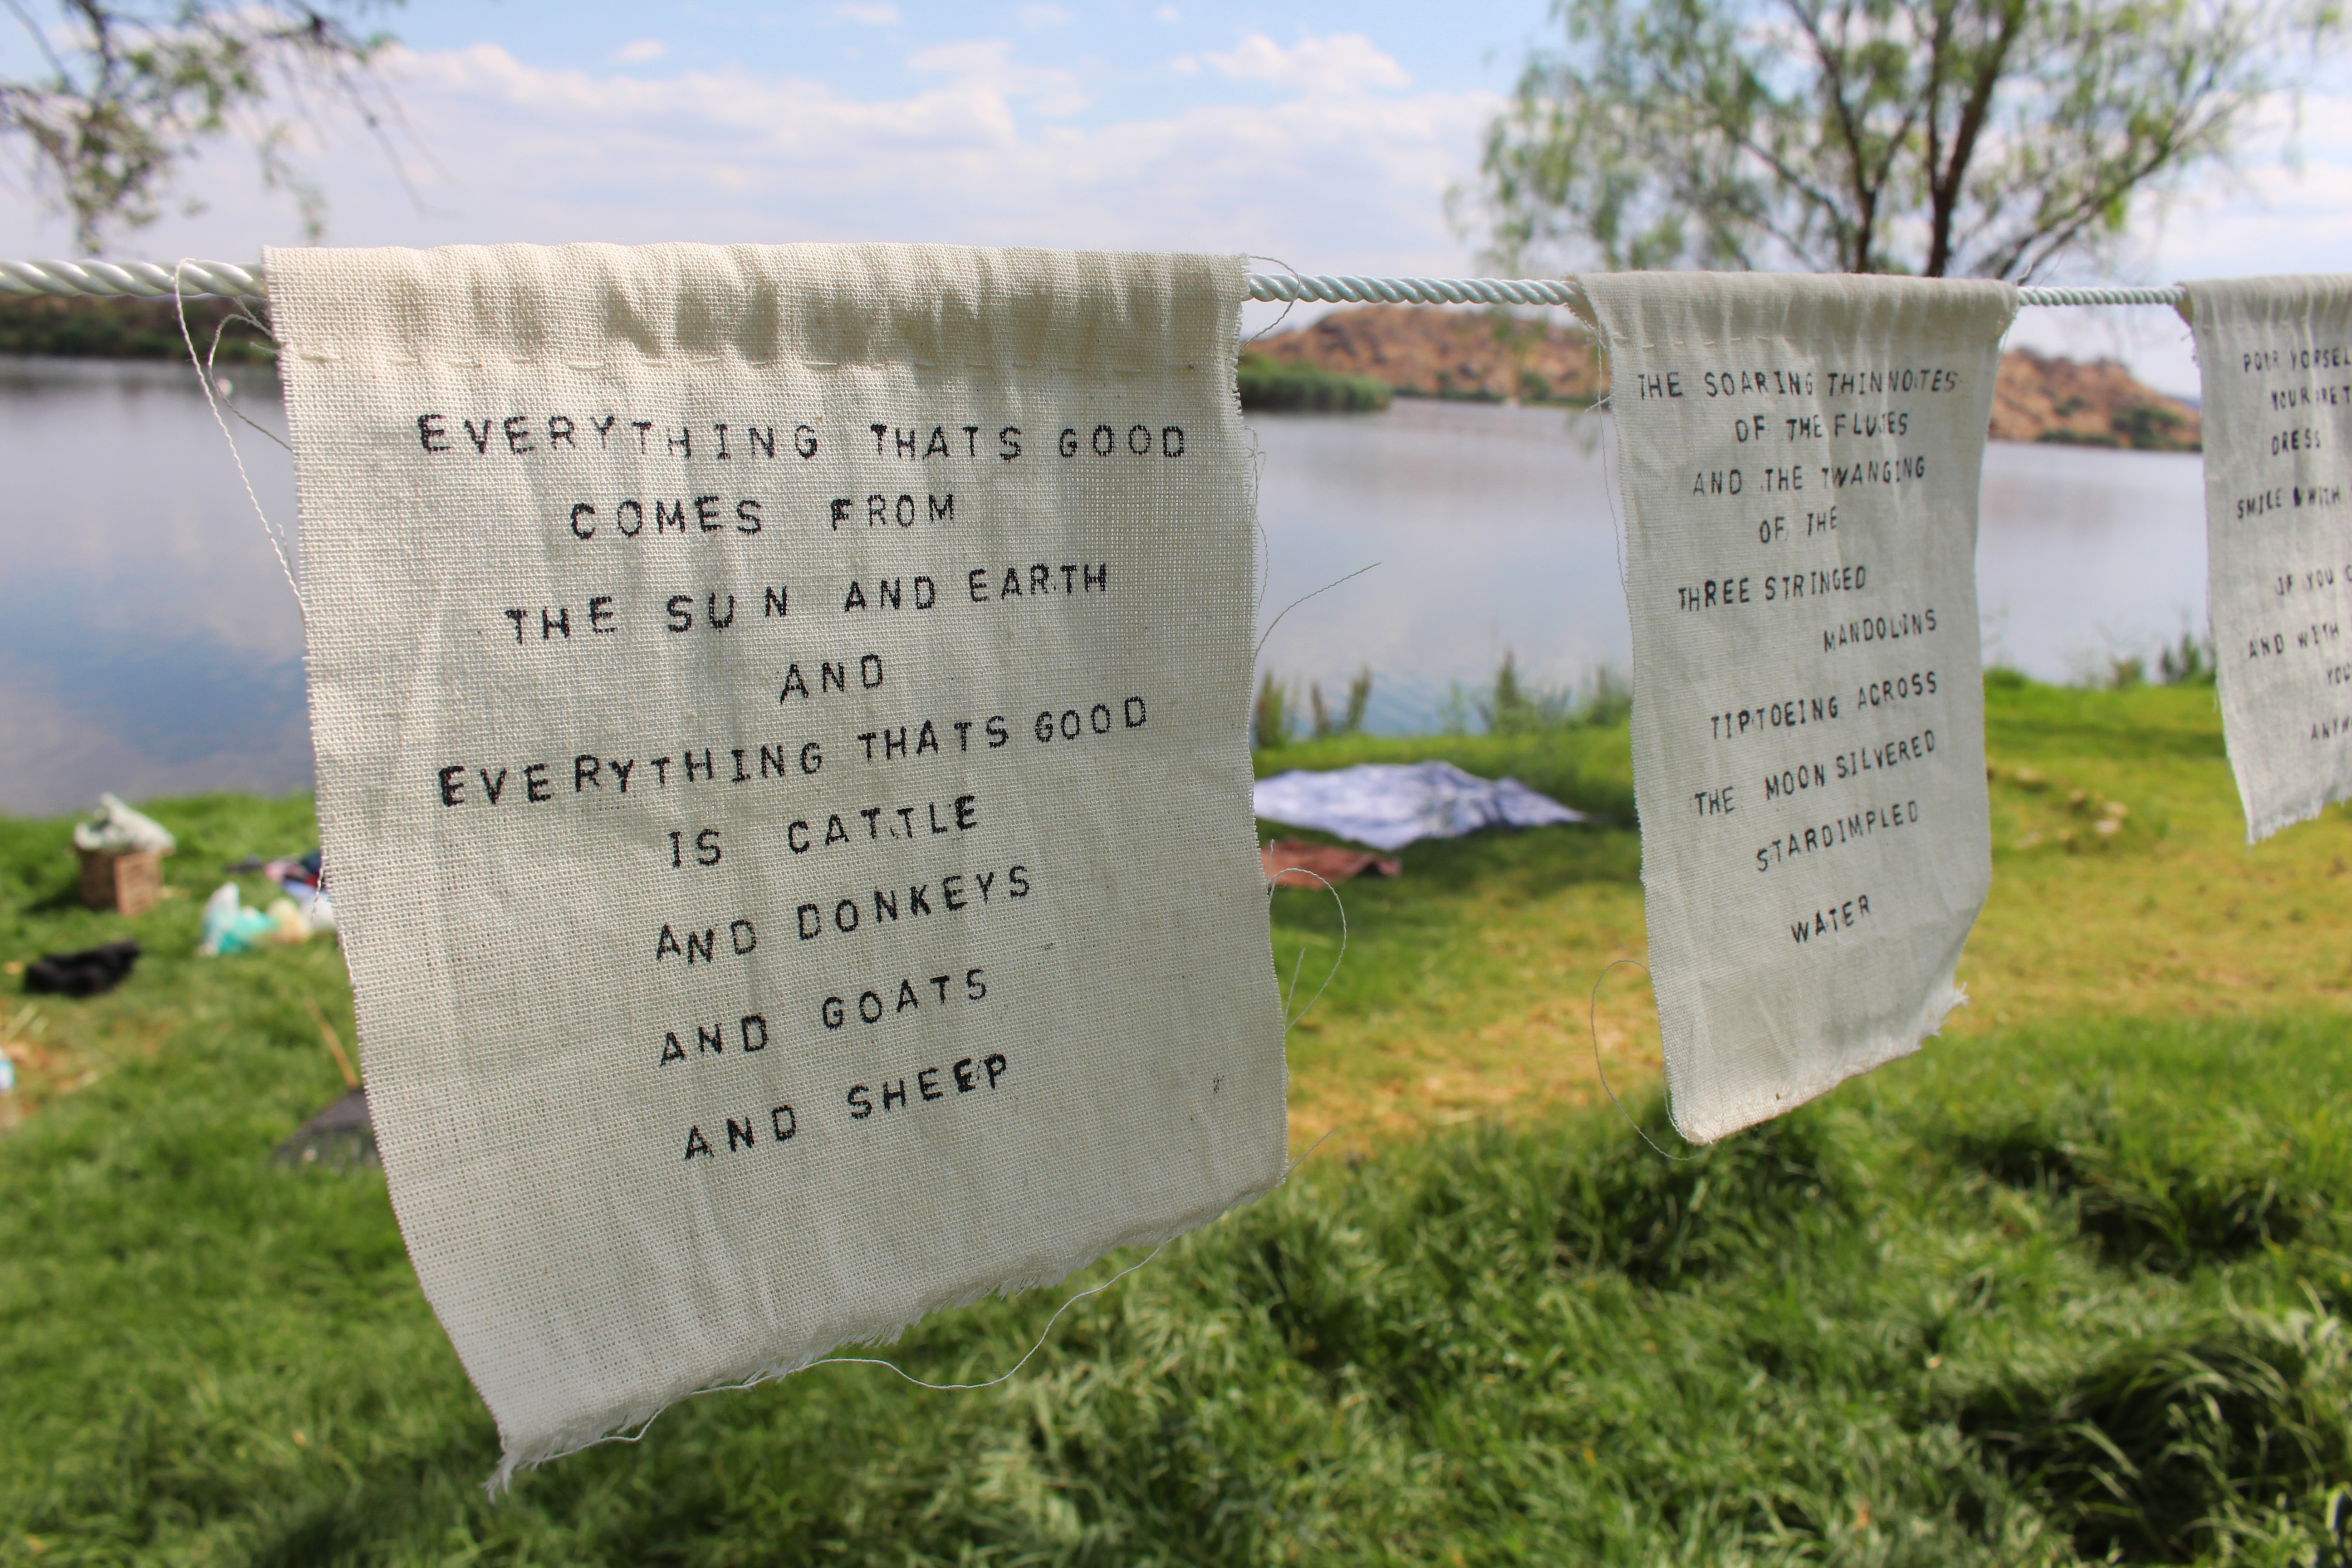 EVERYTHING THATS GOOD
COMES FROM
THE SUN AND EARTH
AND
EVERYTHING THATS GOOD
IS CATTLE
AND DONKEYS
AND GOATS
AND SHEEP
THE SOARING THIN NOTES
OF THE FLUTES
AND THE TWANGING
OF THE
THREE STRINGED
MANDOLINS
TIPTOEING ACROSS
THE MOON SILVERED
STARDIMPLED
WATER
POUR
DRESS
SMILE
IF YOU
AND WITH